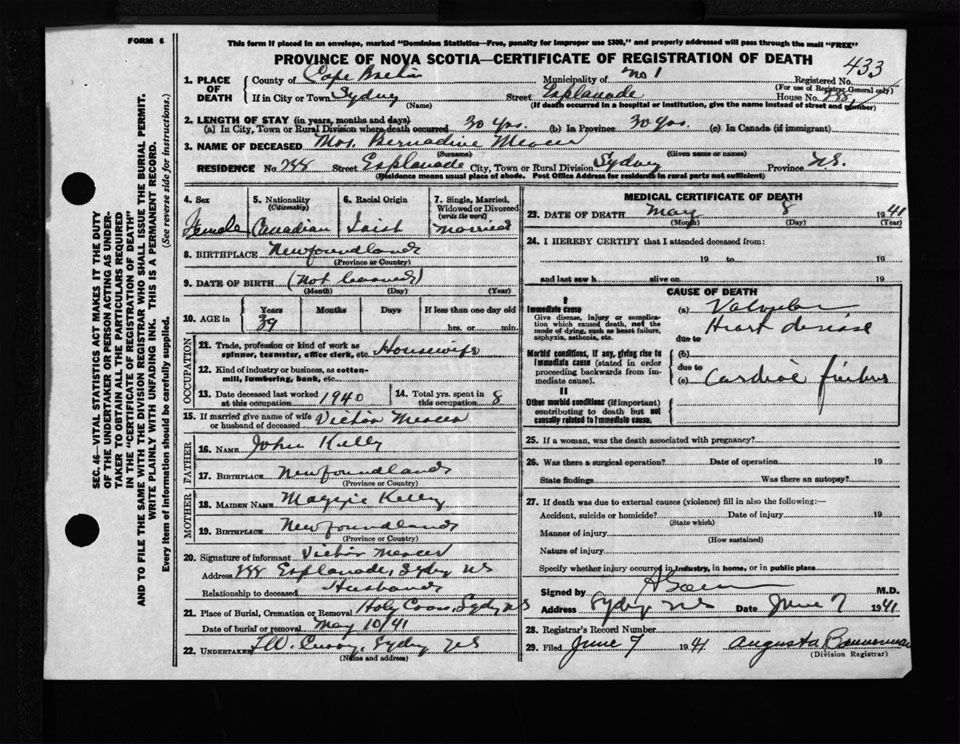 FORM 6
This form if placed in an envelope, marked "Dominion Statistics—Free, penalty for improper use $300," and properly addressed will pass through the mail "FREE"
PROVINCE OF NOVA SCOTIA—CERTIFICATE OF REGISTRATION OF DEATH
433
1. PLACE OF DEATH
County of Cape Breton Municipality of No 1 Registered No.
(For use of Registrar General only)
If in City or Town Sydney Street Esplanade House No.
(Name) (If death occurred in a hospital or institution, give the name instead of street and number)
2. LENGTH OF STAY (in years, months and days)
(a) In City, Town or Rural Division where death occurred 30 yrs. (b) In Province 30 yrs. (c) In Canada (if immigrant)
3. NAME OF DECEASED Mrs. Bernadine Mercer
(Surname) (Given name or names)
RESIDENCE No. Street Esplanade City, Town or Rural Division Sydney Province N.S.
(Residence means usual place of abode. Post Office Address for residents in rural parts not sufficient)
4. Sex Female
5. Nationality (Citizenship) Canadian
6. Racial Origin Irish
7. Single, Married, Widowed or Divorced (write the word) Married
8. BIRTHPLACE Newfoundland
(Province or Country)
9. DATE OF BIRTH (Not learned)
(Month) (Day) (Year)
10. AGE in Years 39 Months Days If less than one day old hrs. or min.
OCCUPATION
11. Trade, profession or kind of work as spinner, teamster, office clerk, etc. Housewife
12. Kind of industry or business, as cotton-mill, lumbering, bank, etc.
13. Date deceased last worked at this occupation 1940
14. Total yrs. spent in this occupation 8
15. If married give name of wife or husband of deceased Victor Mercer
FATHER
16. NAME John Kelly
17. BIRTHPLACE Newfoundland
(Province or Country)
MOTHER
18. MAIDEN NAME Maggie Kelly
19. BIRTHPLACE Newfoundland
(Province or Country)
20. Signature of informant Victor Mercer
Address Esplanade, Sydney N.S
Relationship to deceased Husband
21. Place of Burial, Cremation or Removal Holy Cross, Sydney N.S
Date of burial or removal May 10/41
22. UNDERTAKER Sydney N.S
(Name and address)
MEDICAL CERTIFICATE OF DEATH
23. DATE OF DEATH May 8 1941
(Month) (Day) (Year)
24. I HEREBY CERTIFY that I attended deceased from:
19 to 19
and last saw h alive on 19
CAUSE OF DEATH
I
Immediate cause
Give disease, injury or complication which caused death, not the mode of dying, such as heart failure, asphyxia, asthenia, etc.
(a) Valvular
Heart disease
due to
Morbid conditions, if any, giving rise to immediate cause (stated in order proceeding backwards from immediate cause).
(b)
due to
(c) Cardiac failure
II
Other morbid conditions (if important) contributing to death but not causally related to immediate cause.
25. If a woman, was the death associated with pregnancy?
26. Was there a surgical operation? Date of operation 19
State findings Was there an autopsy?
27. If death was due to external causes (violence) fill in also the following:—
Accident, suicide or homicide? Date of injury 19
(State which)
Manner of injury
(How sustained)
Nature of injury
Specify whether injury occurred in industry, in home, or in public place
Signed by M.D.
Address Sydney N.S Date June 7 1941
28. Registrar's Record Number
29. Filed June 7 1941 Augusta
(Division Registrar)
SEC. 46—VITAL STATISTICS ACT MAKES IT THE DUTY
OF THE UNDERTAKER OR PERSON ACTING AS UNDERTAKER
TO OBTAIN ALL THE PARTICULARS REQUIRED
IN THE "CERTIFICATE OF REGISTRATION OF DEATH"
AND TO FILE THE SAME WITH THE DIVISION REGISTRAR WHO SHALL ISSUE THE BURIAL PERMIT.
WRITE PLAINLY WITH UNFADING INK. THIS IS A PERMANENT RECORD.
Every item of information should be carefully supplied. (See reverse side for instructions.)